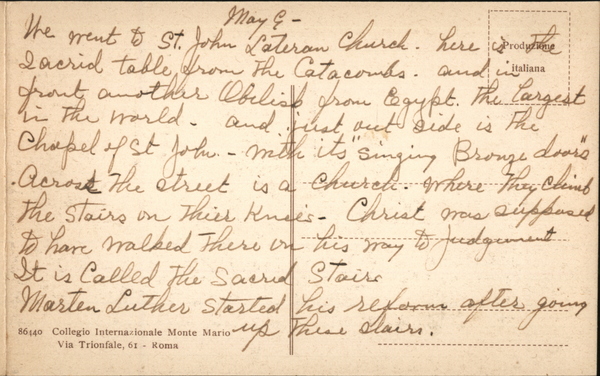 May 9-
We went to St. John Lateran Church. here is the
Sacrid table from the Catacombs. and in
front another Obelisk from Egypt. the largest
in the world. and just out side is the
Chapel of St John. - with its "Singing Bronze doors"
Across the street is a church. where they climb
the stairs on thier Knees - Christ was supposed
to have walked there on his way to judgement
It is Called the Sacred Stairs
Marten Luther started his reform after going
up these stairs.
Produzione
italiana
86440 Collegio Internazionale Monte Mario
Via Trionfale, 61 - Roma